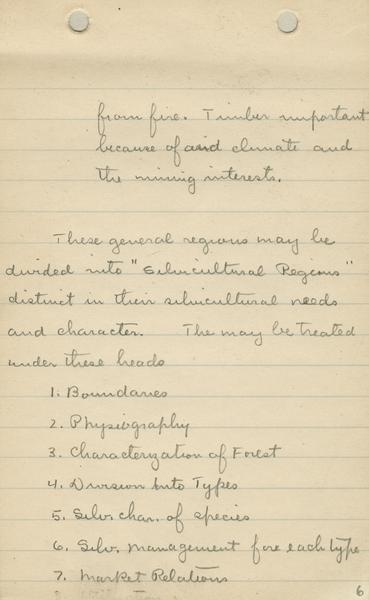 from fire. Timber important
because of arid climate and
the mining interests.
These general regions may be
divided into "Silvicultural Regions"
distinct in their silvicultural needs
and character. The may be treated
under these heads
1. Boundaries
2. Physiography
3. Characterization of Forest
4. Division into Types
5. Silv. char. of species
6. Silv. management for each type
7. Market Relations
6